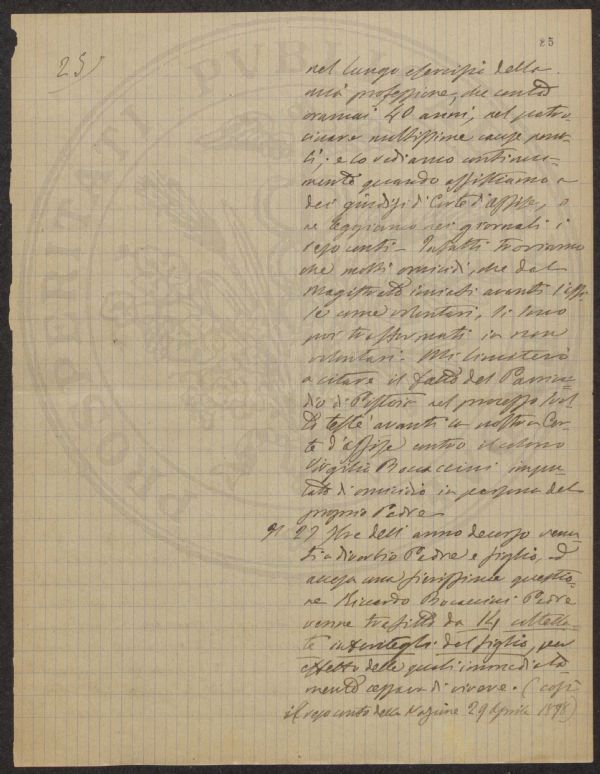 25
25)
nel lungo esercizio della
mia professione, che conto
oramai 40 anni, nel patro-
cinare moltissime cause pena-
li; e lo vediamo continua-
mente quando assistiamo a
dei giudizi di Corte d'assise, o
ne leggiamo nei giornali i
resoconti - Infatti troviamo
che molti omicidi, che dal
Magistrato inviati avanti l'assi-
se come volontari, si sono
poi trasformati in non
volontari. Mi limiterò
a citare il fatto del Parrici-
dio di Pistoia nel processo svol-
to testè avanti la nostra Cor-
te d'assise contro il colono
Virgilio Bocaccini impu-
tato di omicidio in persona del
proprio Padre
Il 27 7bre dell'anno decorso venu-
ti a diverbio Padre e figlio, ed
accesa una fierissima questio-
ne Riccardo Bocaccini Padre
venne trafitto da 14 coltella-
te del figlio, per
effetto delle quali immediata-
mente cessava di vivere. (così
il resoconto della Nazione 29 Aprile 1898)